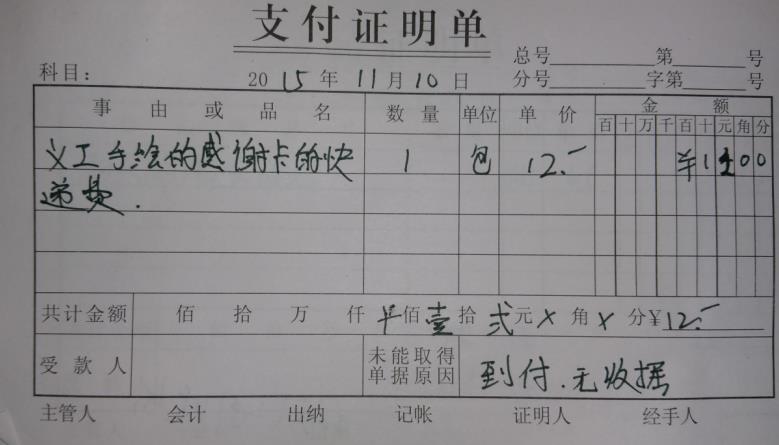 支付证明单
总号 第 号
科目： 2015年11月10日 分号 字第 号
事由或品名 数量 单位 单价 金额
百十万千百十元角分
义工手绘的感谢卡的快 1 包 12.- ¥1200
递费.
共计金额 佰 拾 万 仟 佰壹拾贰元×角×分¥12.-
受款人 未能取得单据原因 到付.无收据
主管人 会计 出纳 记帐 证明人 经手人